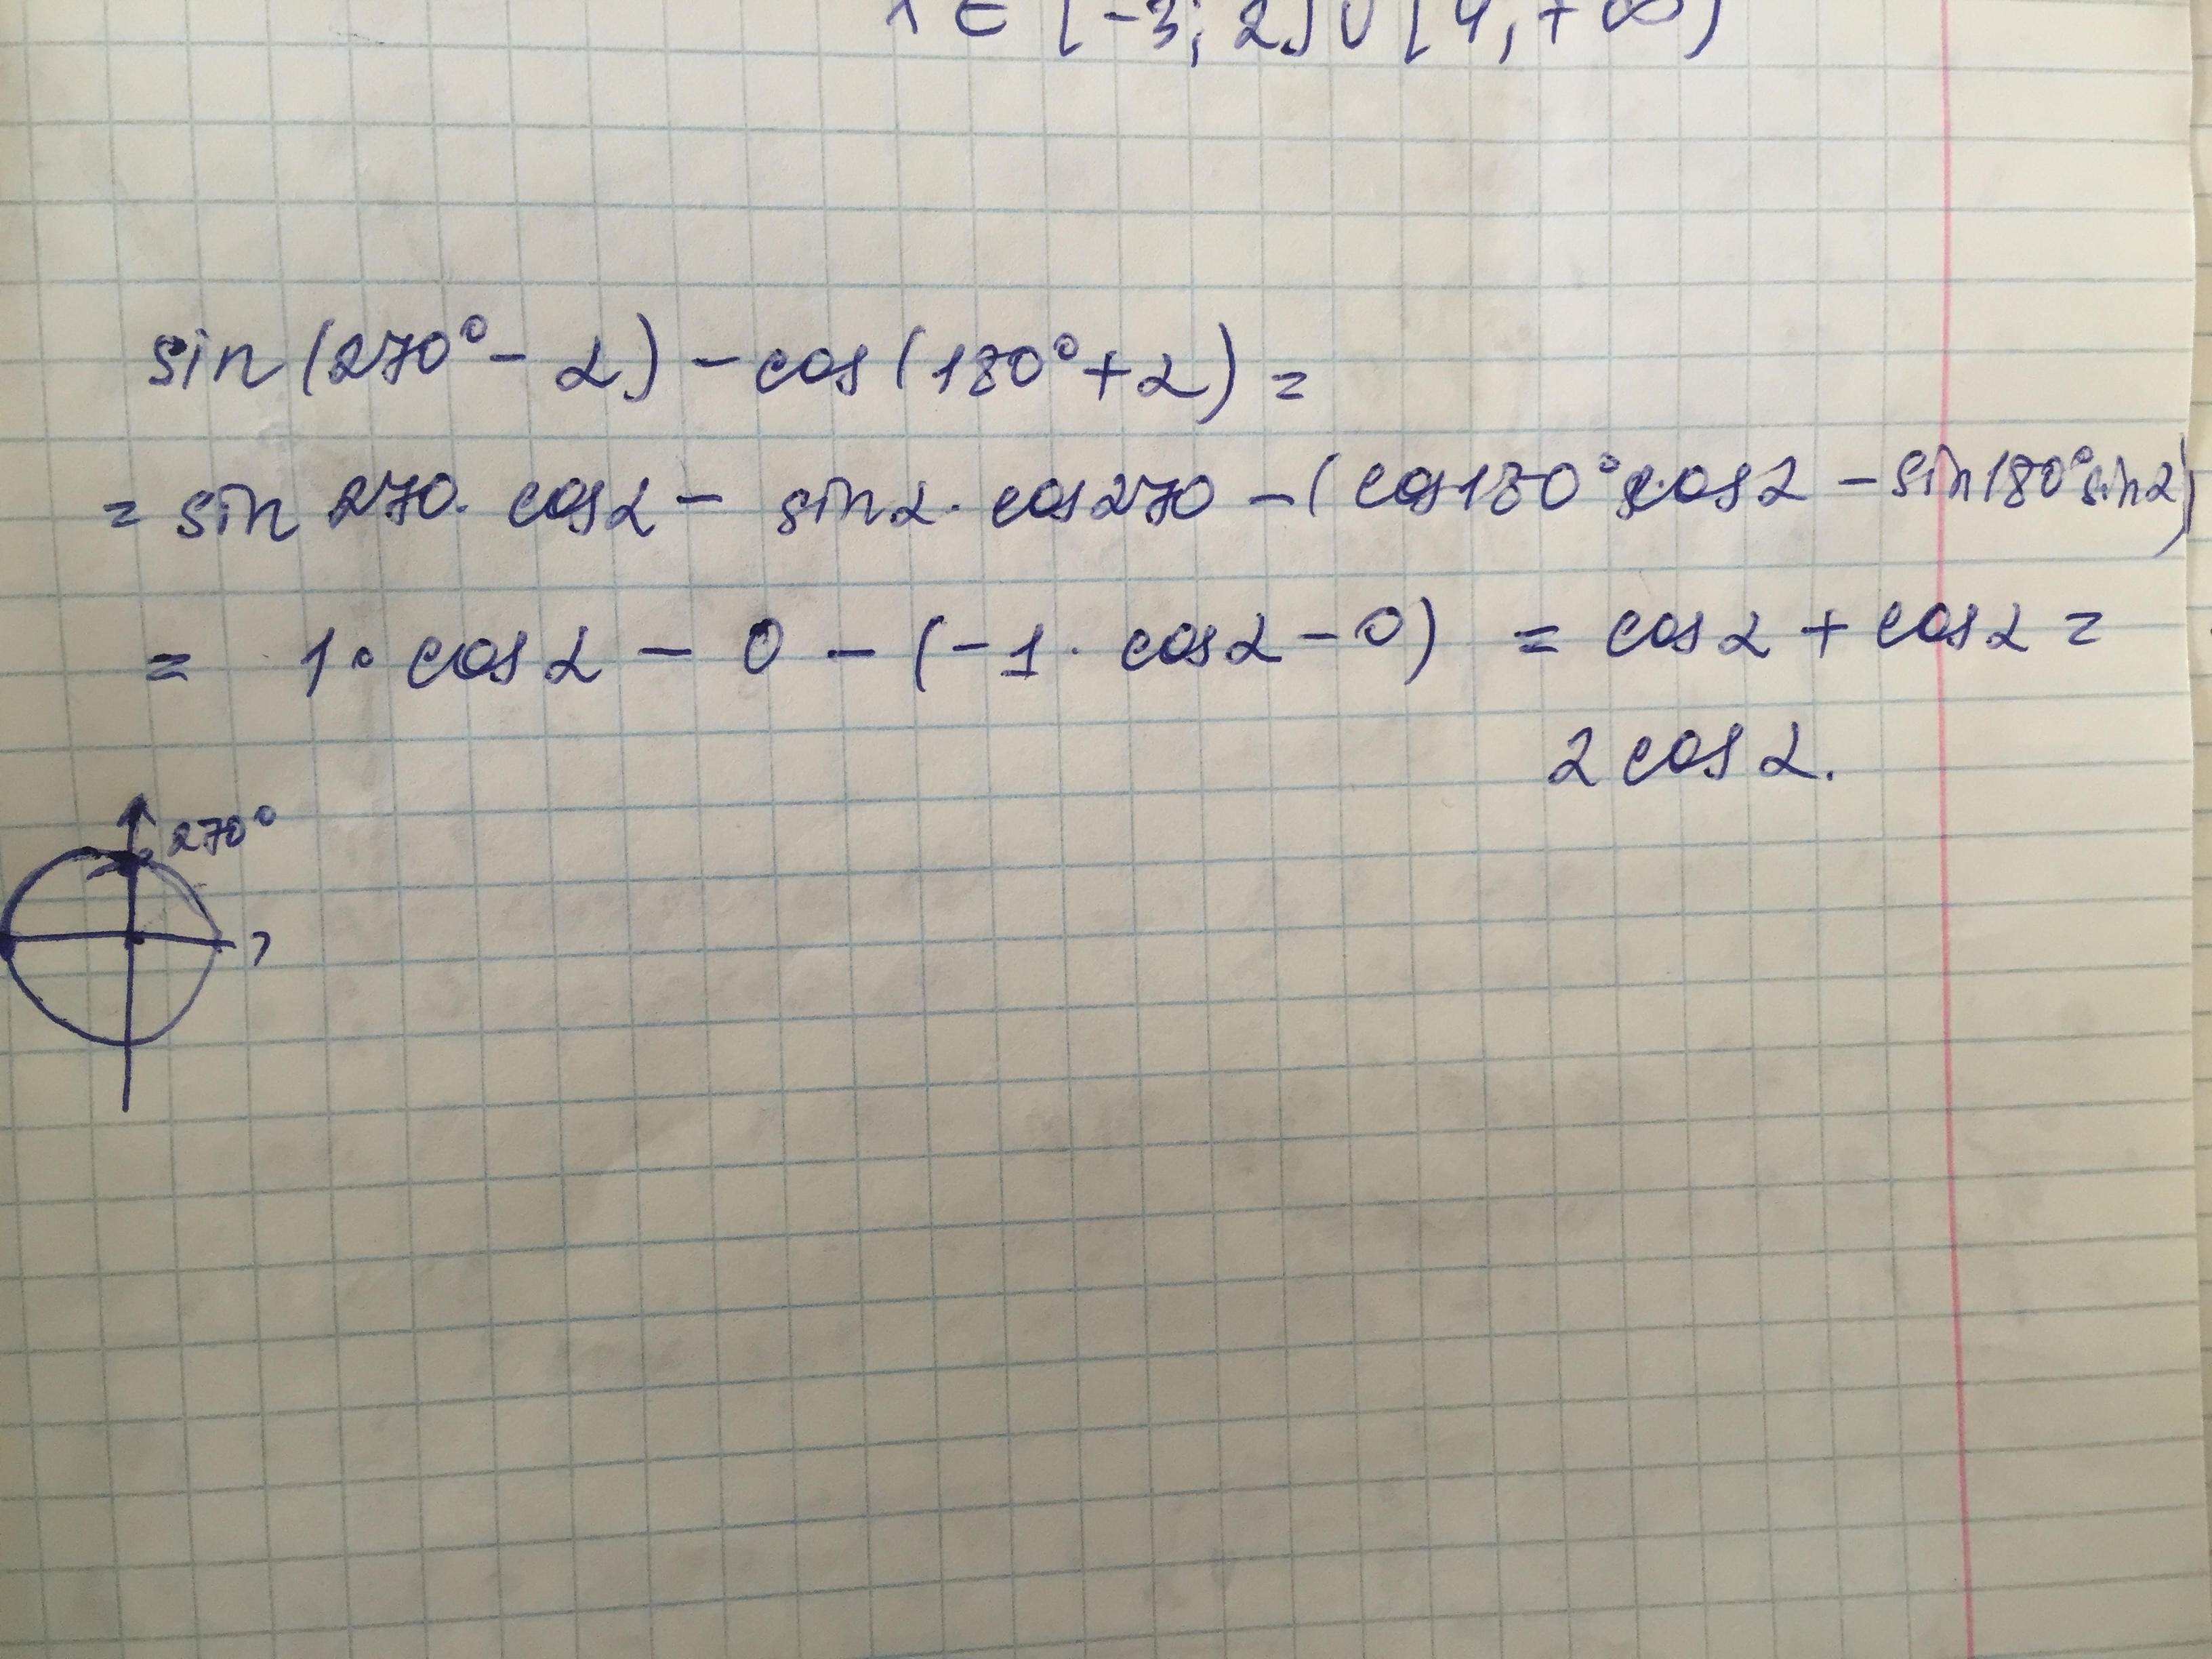 x ∈ [-3; 2] ∪ [4, +∞)
sin (270° - α) - cos (180° + α) =
= sin 270 · cos α - sin α · cos 270 - (cos 180° · cos α - sin 180° sin α)
= 1 · cos α - 0 - (-1 · cos α - 0) = cos α + cos α =
2 cos α.
270°